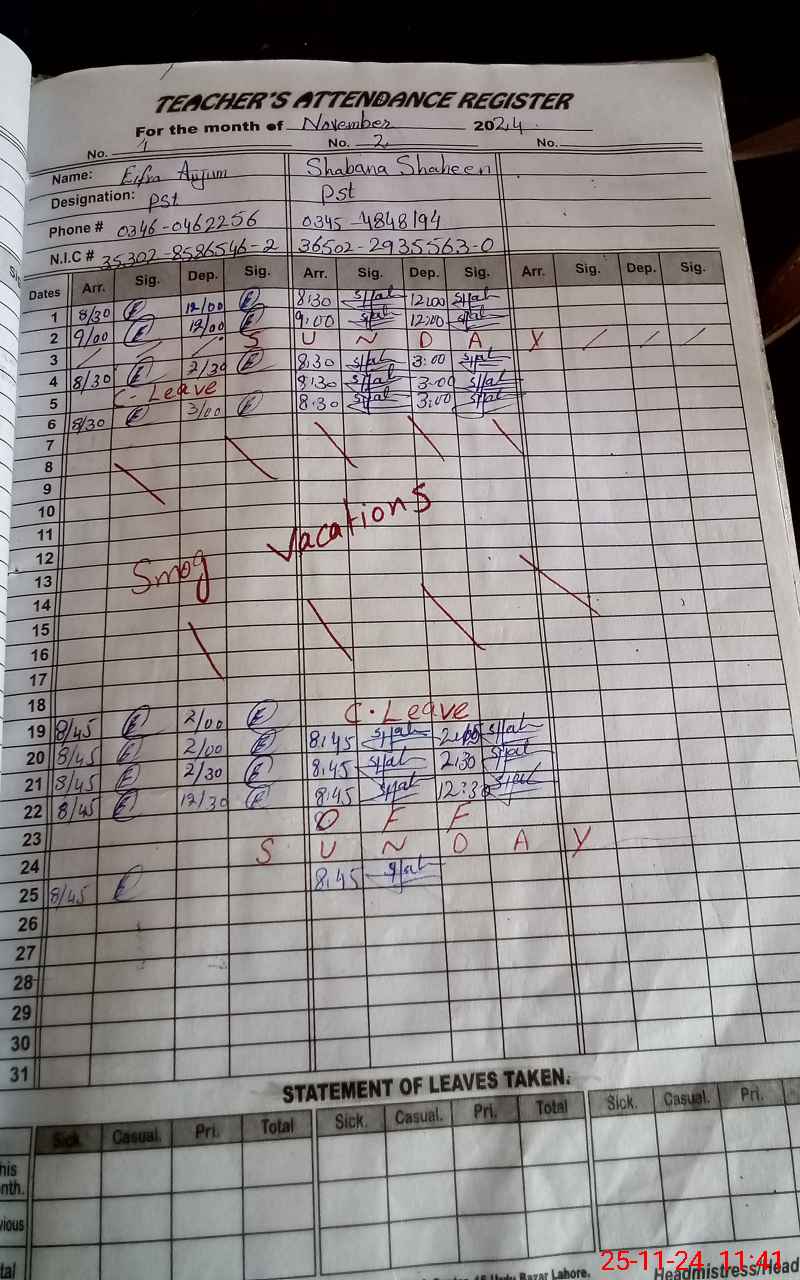 TEACHER'S ATTENDANCE REGISTER
For the month of November 2024
No. 1 No. 2 No.
Name: Eifra Anjum Shabana Shaheen
Designation: PST Pst
Phone # 0346-0462256 0345-4848194
N.I.C # 35302-8586546-2 36502-2935563-0
Dates Arr. Sig. Dep. Sig. Arr. Sig. Dep. Sig. Arr. Sig. Dep. Sig.
1 8/30 E 12/00 E 8:30 12:00
2 9/00 E 12/00 E 9:00 12:00
3 S U N D A Y
4 8/30 E 2/30 E 8:30 3:00
5 C-Leave 8:30 3:00
6 8/30 E 3/00 E 8:30 3:00
7
8
9
10
11
12
13
14
15
16
17
Smog Vacations
18
19 8/45 E 2/00 E C. Leave
20 8/45 E 2/00 E 8:45
21 8/45 E 2/30 E 8:45 2:30
22 8/45 E 12/30 E 8:45 12:30
23 O F F
24 S U N D A Y
25 8/45 E 8:45
26
27
28
29
30
31
STATEMENT OF LEAVES TAKEN.
Sick. Casual. Pri. Total Sick. Casual. Pri. Total Sick. Casual. Pri.
his
nth.
vious
tal
Bazar Lahore.
Headmistress/Head
25-11-24 11:41